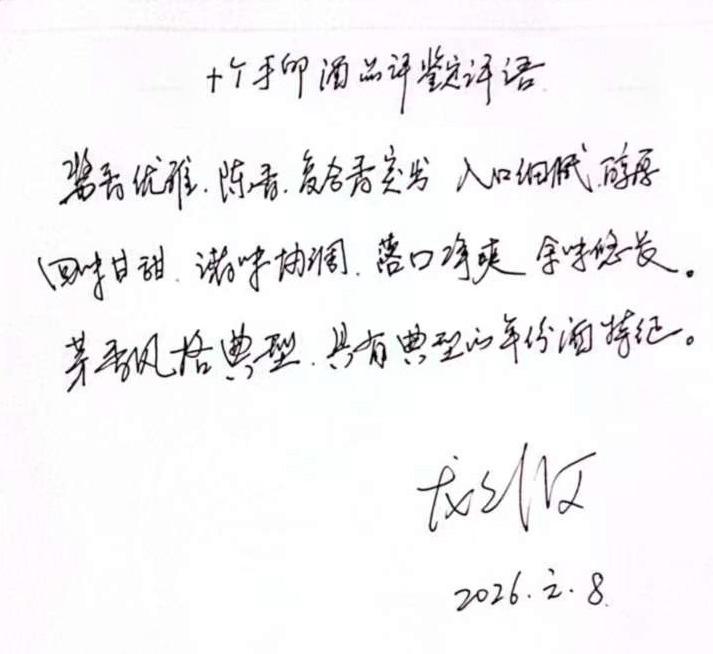 十个手印酒品评鉴定评语
酱香优雅、陈香、复合香突出 入口细腻、醇厚
回味甘甜、诸味协调、落口净爽 余味悠长。
茅香风格典型、具有典型的年份酒特征。
2026.2.8